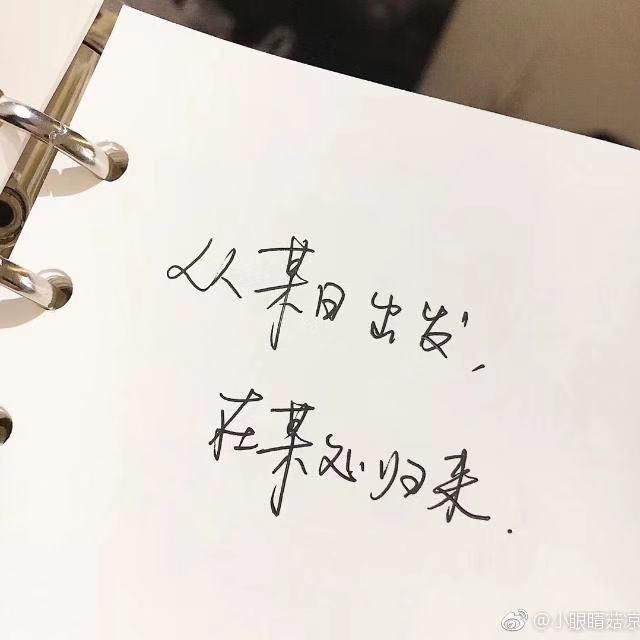 从某日出发，
在某处归来.
@小眼睛菇凉